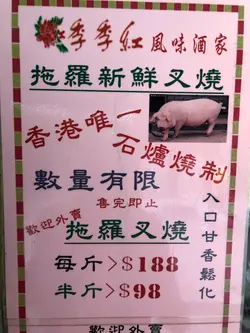 季季紅風味酒家
拖羅新鮮叉燒
香港唯一
石爐燒制
數量有限
售完即止
歡迎外賣
拖羅叉燒
每斤>$188
半斤>$98
入口甘香鬆化
歡迎外賣